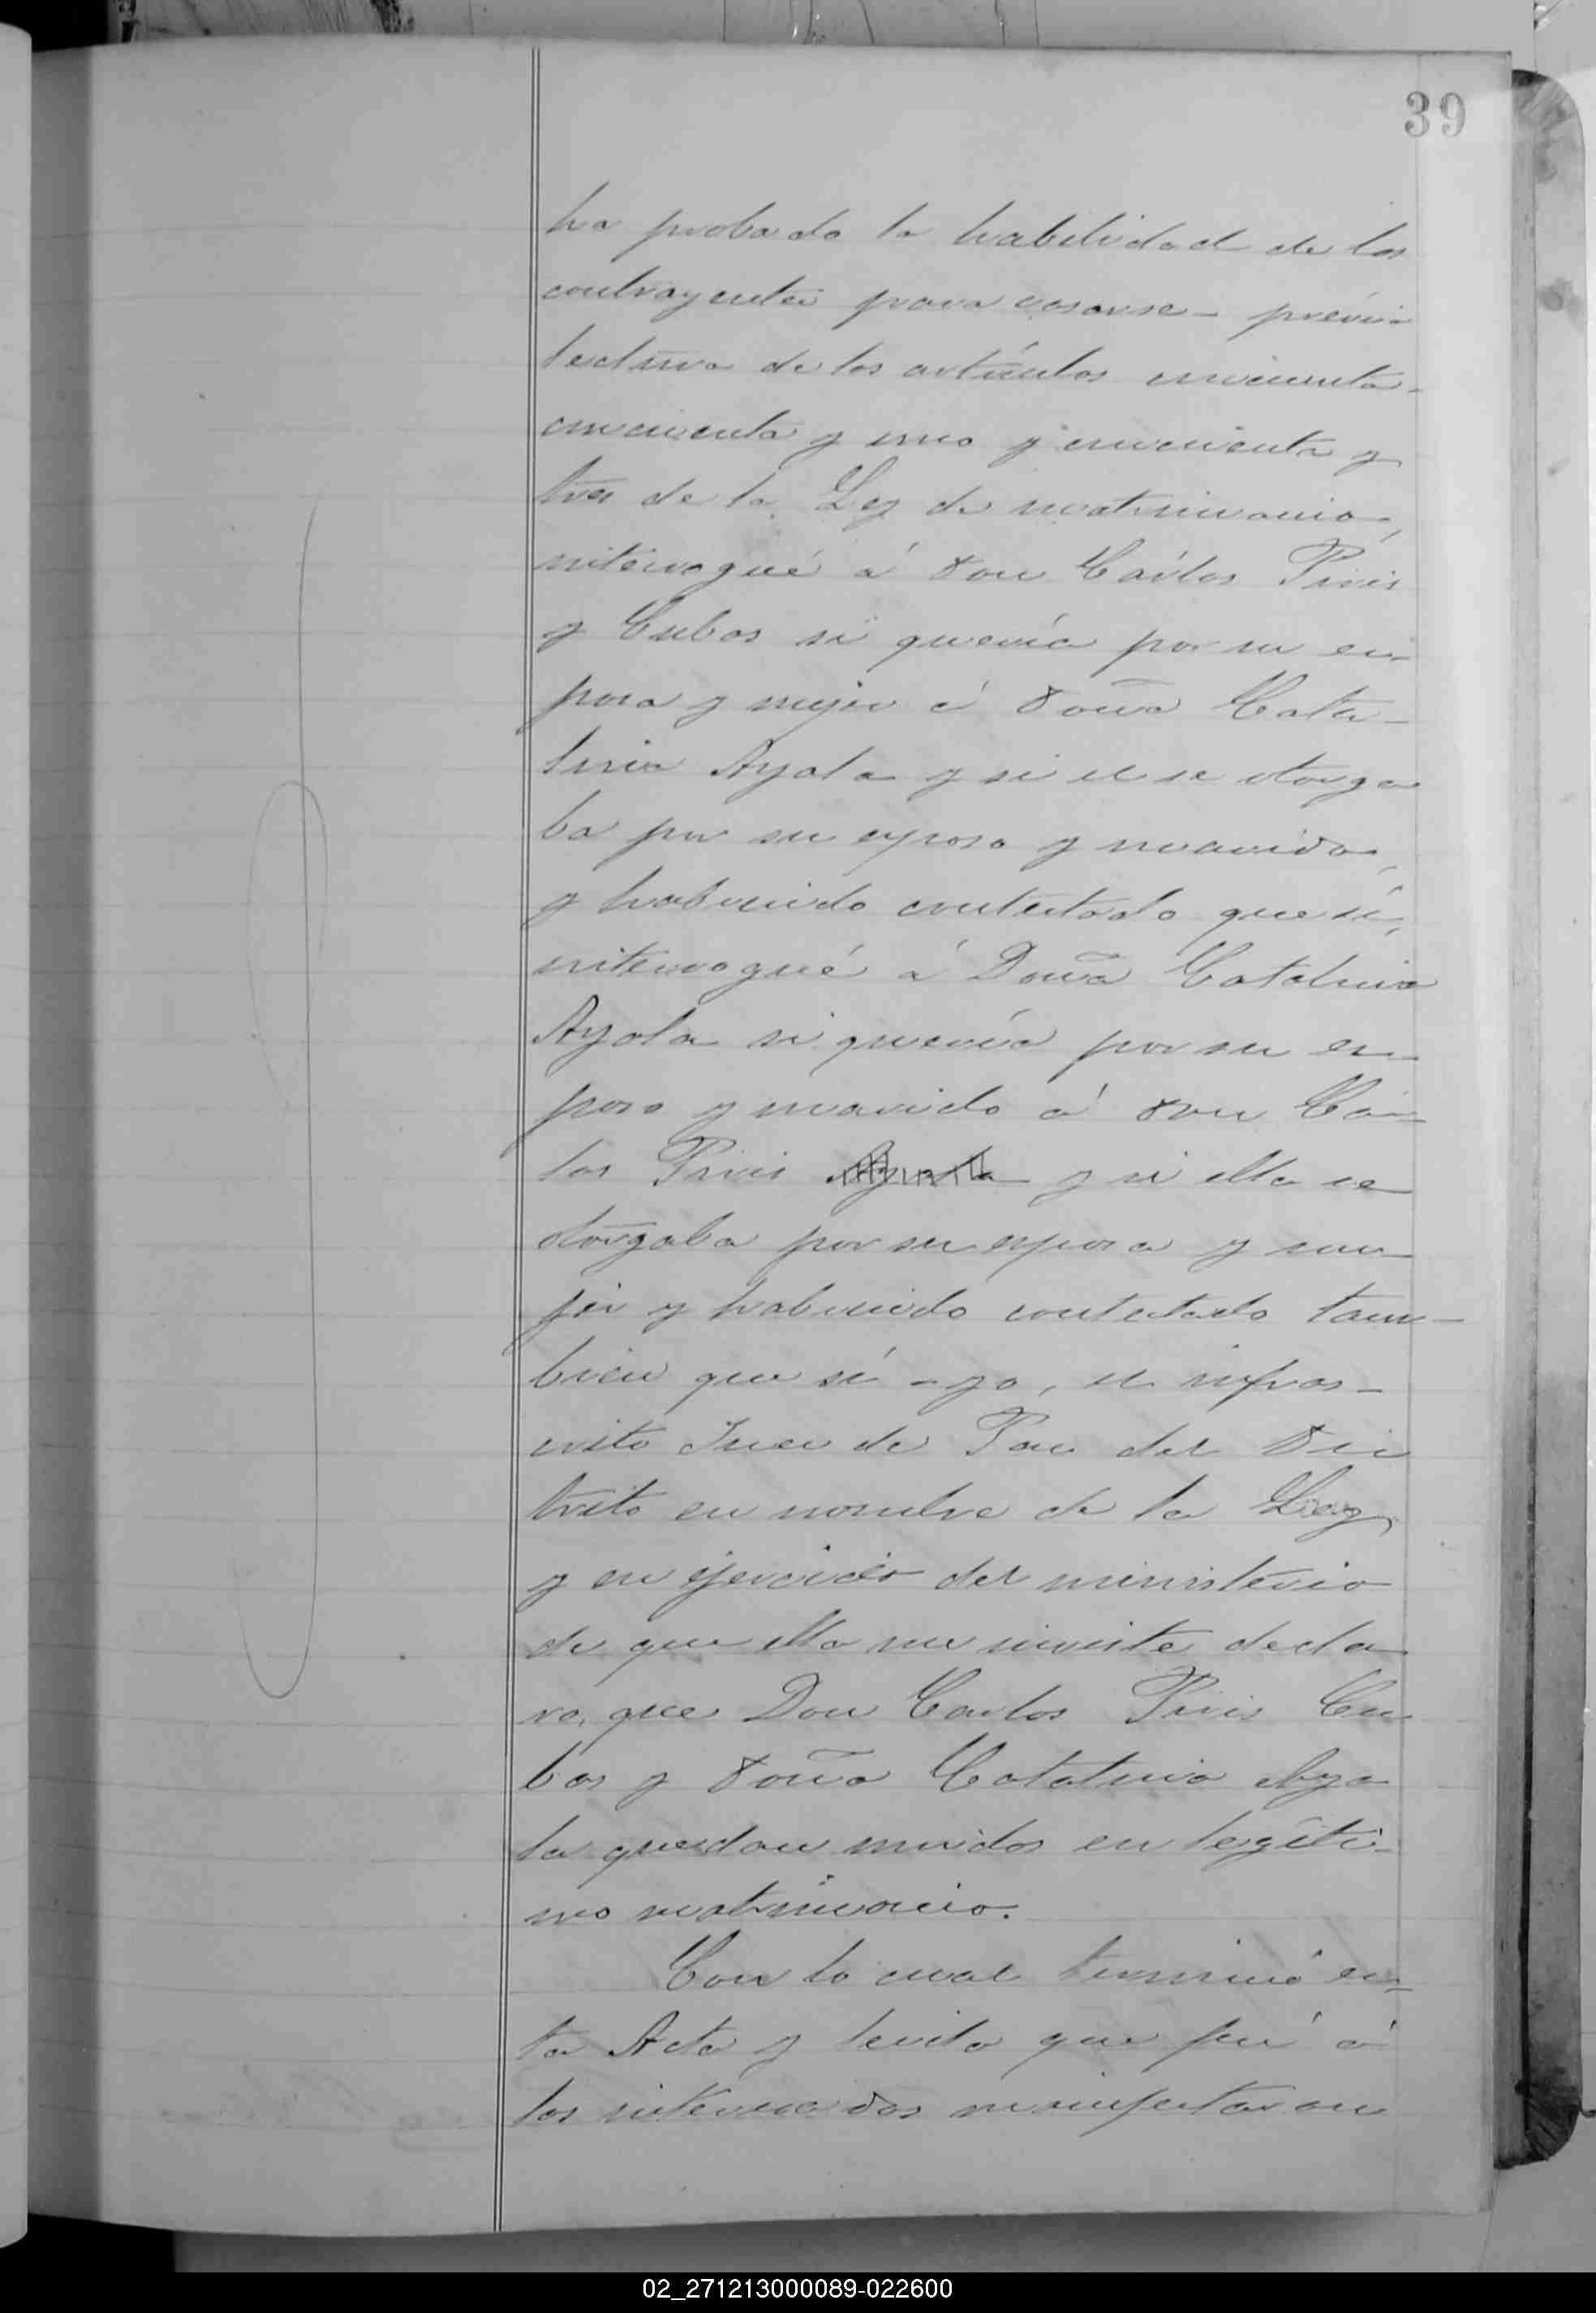 39
ha probado la habilidad de los
contrayentes para casarse – prévia
lectura de los artículos cincuenta –
cincuenta y uno y cincuenta y
tres de la Ley de matrimonio,
interrogué á Don Cárlos
y Cubas si quería por su es-
posa y mujer á Doña Cata-
lina Ayala y si él se otorga
ba por su esposo y marido,
y habiendo contestado que sí,
interrogué á Doña Catalina
Ayala si quería por su es-
poso y marido á Don Cár-
los y si ella se
otorgaba por su esposa y mu-
jer y habiendo contestado tam-
bien que sí – yo, el infras-
crito Juez de Paz del Dis
trito en nombre de la Ley,
y en ejercicio del ministerio
de que ella me inviste decla
ro, que Don Carlos Cu
bas y Doña Catalina Aya
la quedan unidos en legíti-
mo matrimonio.
Con lo cual terminó es-
ta Acta y leida que fué á
los interesados manifestaron
02_271213000089-022600